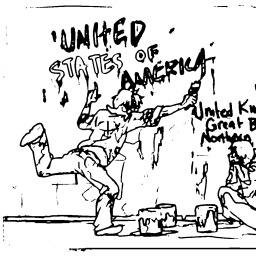 UNITED
STATES OF
AMERICA
United Ki
Great B
Northern